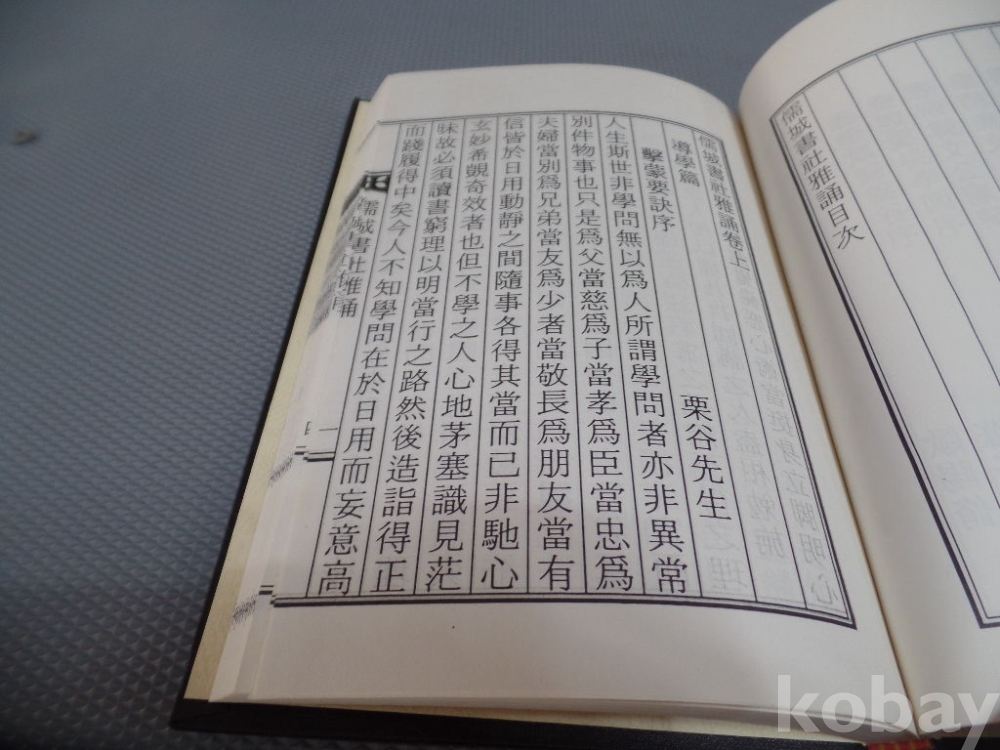 儒城書社雅誦目次
儒城書社雅誦卷上
導學篇
擊蒙要訣序 栗谷先生
人生斯世非學問無以爲人所謂學問者亦非異常
別件物事也只是爲父當慈爲子當孝爲臣當忠爲
夫婦當別爲兄弟當友爲少者當敬長爲朋友當有
信皆於日用動靜之間隨事各得其當而已非馳心
玄妙希覬奇效者也但不學之人心地茅塞識見茫
昧故必須讀書窮理以明當行之路然後造詣得正
而踐履得中矣今人不知學問在於日用而妄意高
儒城書社雅誦
一
kobay